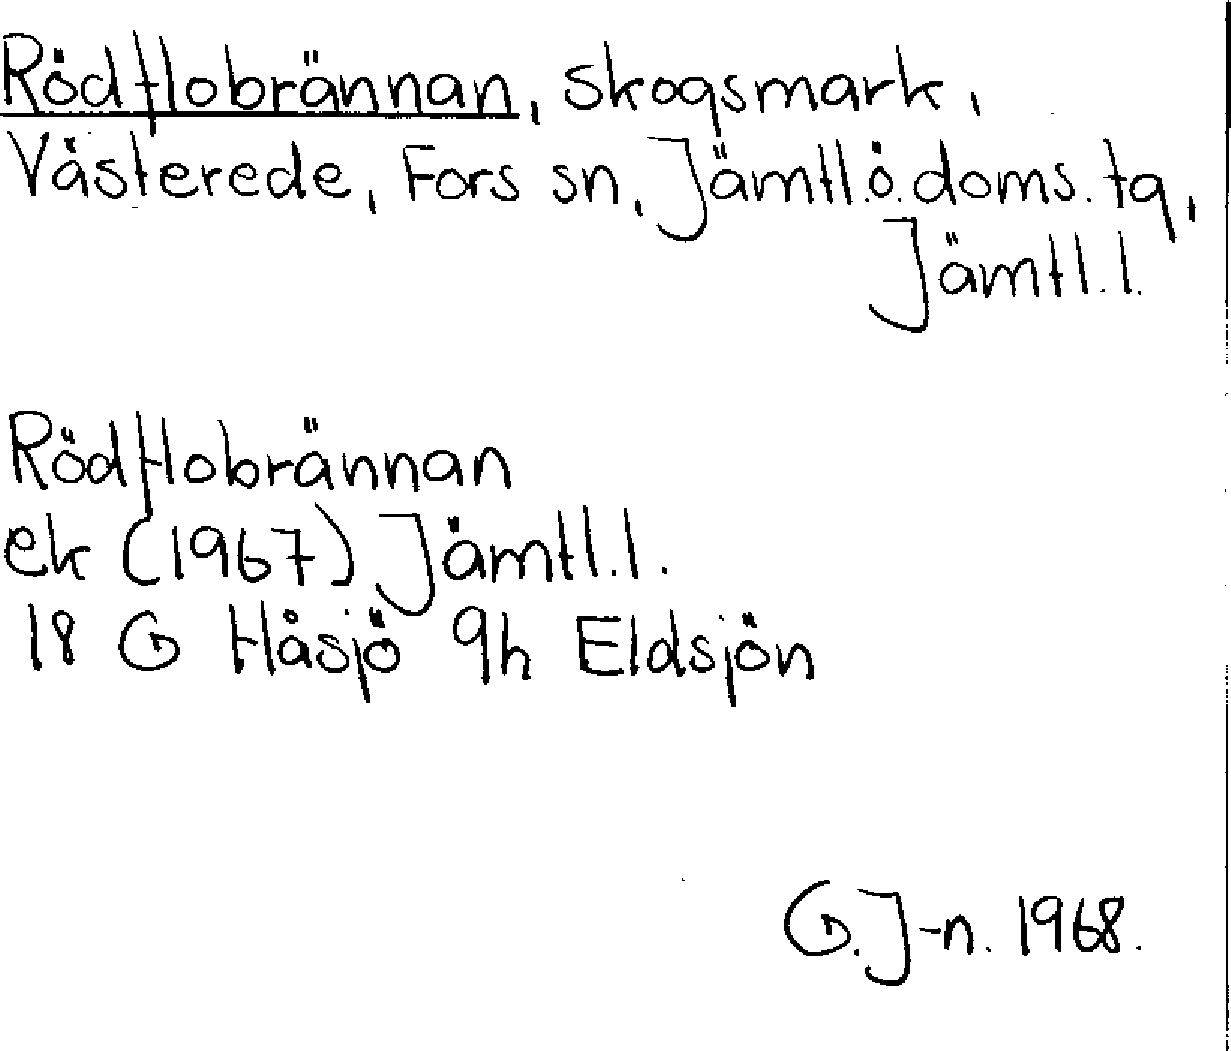 Rödflobrännan, skogsmark,
Västerede, Fors sn, Jämtl.ö.doms.tg,
Jämtl.l.
Rödflobrännan
ek (1967) Jämtl.l.
18 G Håsjö 9h Eldsjön
G.J-n. 1968.